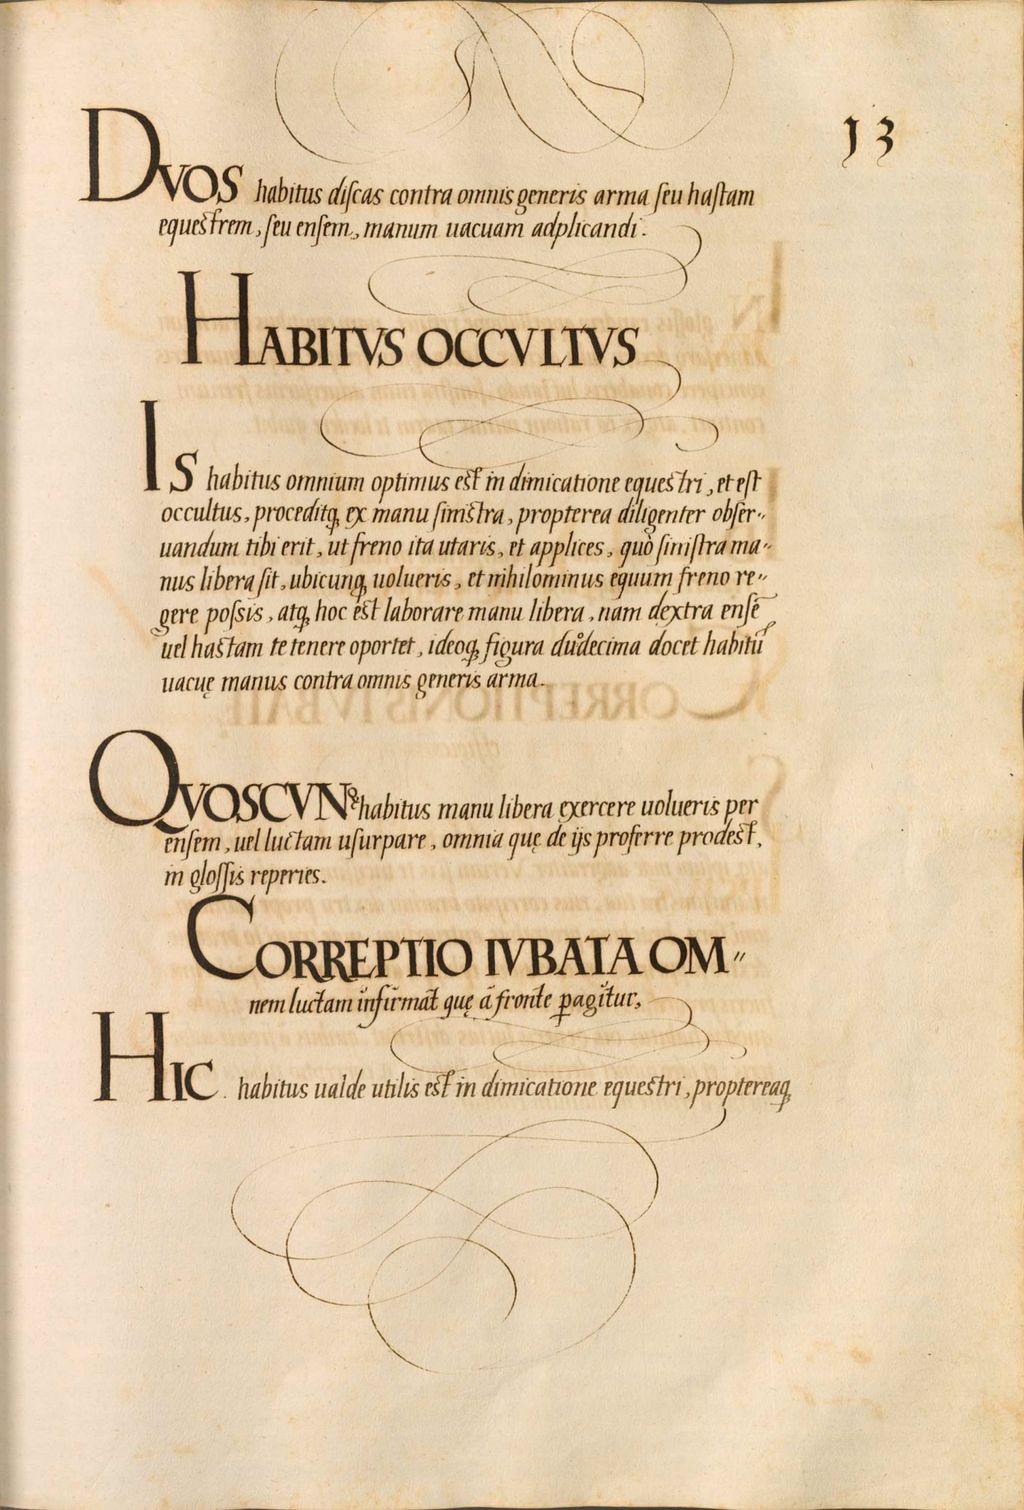 13
DVOS habitus discas contra omnis generis arma seu hastam
equestrem, seu ensem, manum uacuam adplicandi.
HABITVS OCCVLTVS
IS habitus omnium optimus est in dimicatione equestri, et est
occultus, proceditq₃ ex manu sinistra, propterea diligenter obser-
uandum tibi erit, ut freno ita utaris, et applices, quò sinistra ma-
nus libera sit, ubicunq₃ uolueris, et nihilominus equum freno re-
gere possis, atq₃ hoc est laborare manu libera, nam dextra ensē
uel hastam te tenere oportet, ideoq₃ figura duodecima docet habitū
uacuę manus contra omnis generis arma.
QVOSCVNQ₃ habitus manu libera exercere uolueris per
ensem, uel luctam usurpare, omnia quę de ijs proferre prodest,
in glossis reperies.
CORREPTIO IVBATA OM-
nem luctam infirmat quę á fronte ꝑagitur,
HIC. habitus ualde utilis est in dimicatione equestri, proptereaq₃